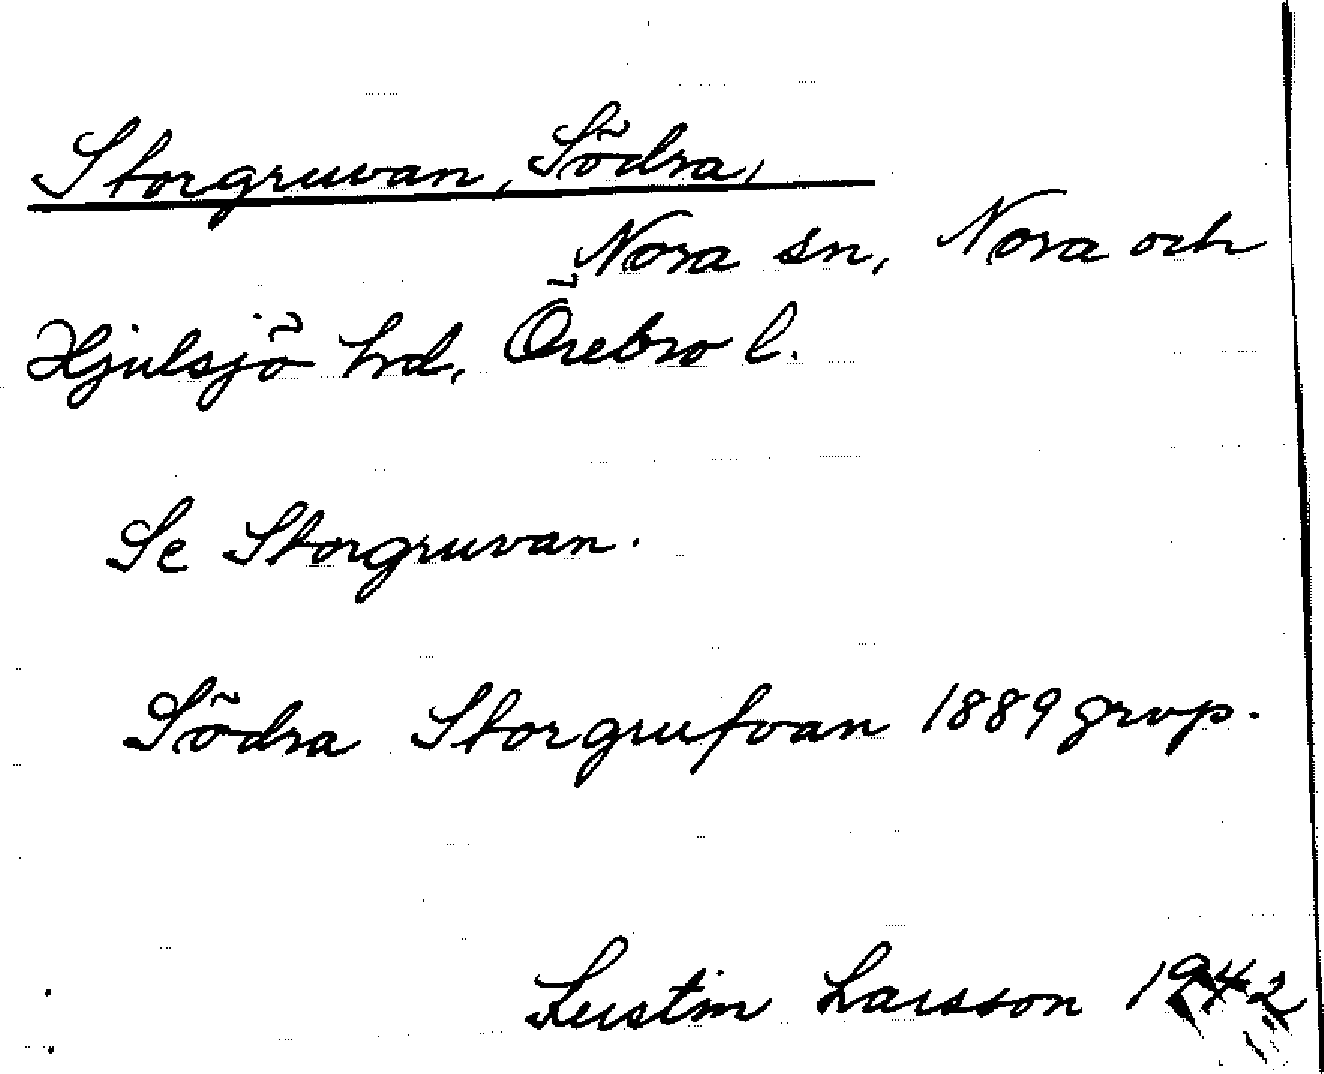 Storgruvan, Södra,
Nora sn, Nora och
Hjulsjö hrd, Örebro l.
Se Storgruvan.
Södra Storgrufvan 1889 grvp.
Kerstin Larsson 1942